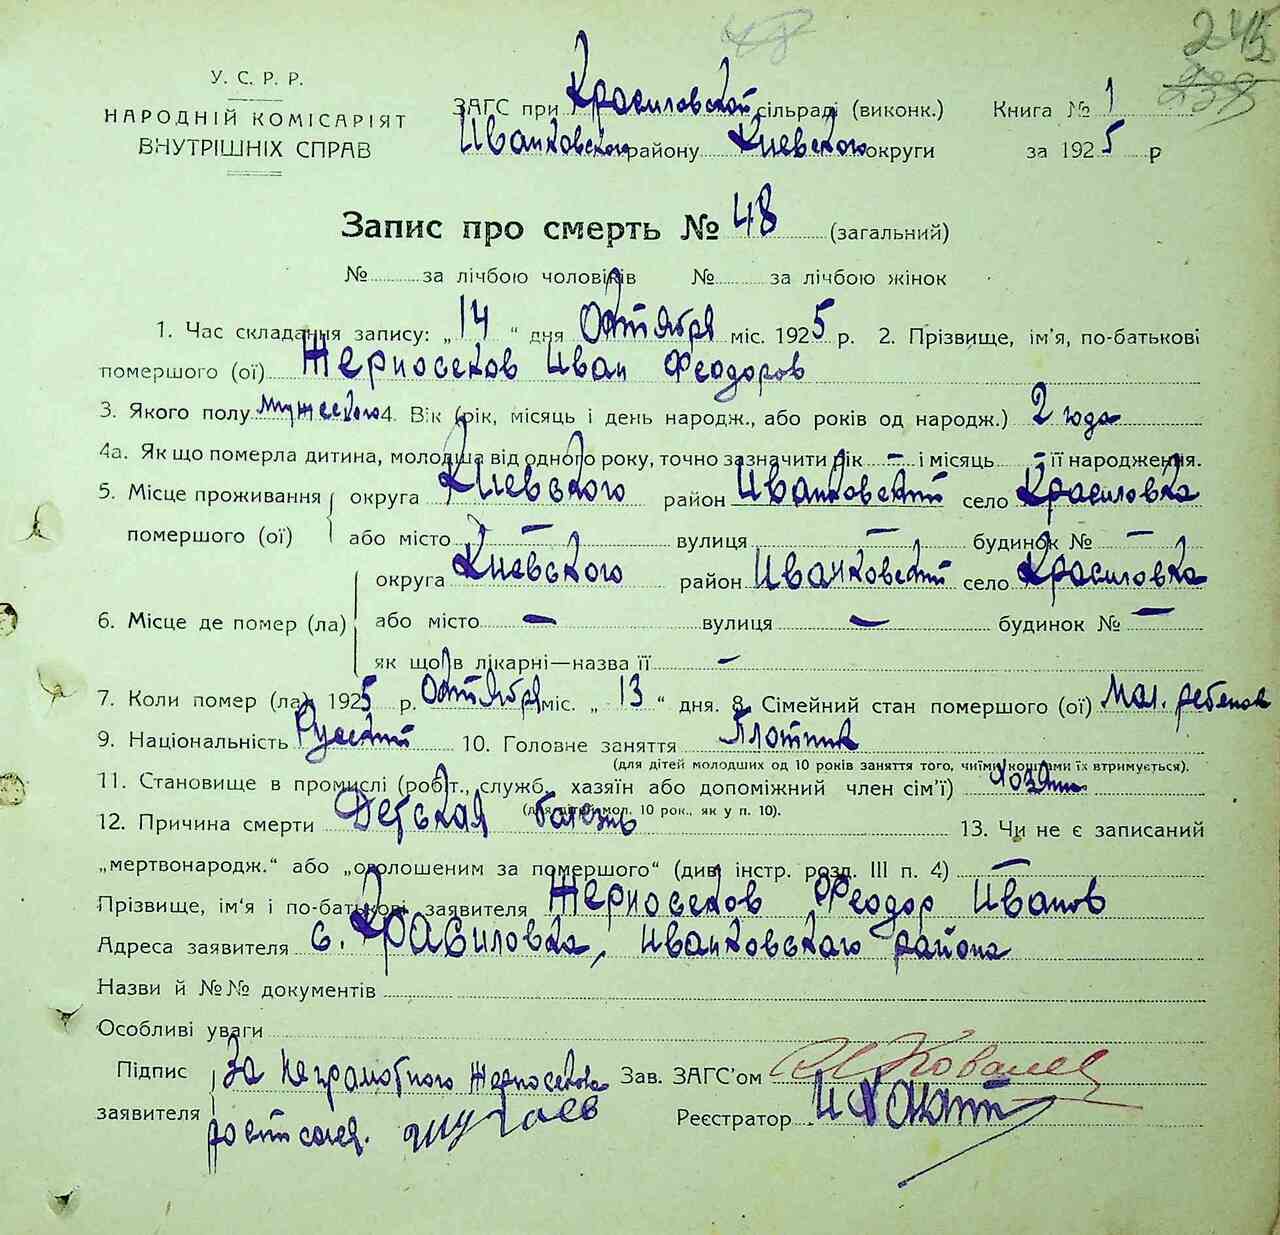 48
245
239
У. С. Р. Р.
НАРОДНІЙ КОМІСАРІЯТ
ВНУТРІШНІХ СПРАВ
ЗАГС при Красиловской сільраді (виконк.)
Книга № 1
Иванковского району Киевского округи
за 1925 р
Запис про смерть № 48 (загальний)
№ за лічбою чоловіків № за лічбою жінок
1. Час складання запису: „14“ дня Октября міс. 1925 р. 2. Прізвище, ім'я, по-батькові
помершого (ої) Жерносеков Иван Феодоров
3. Якого полу мужеского 4. Вік (рік, місяць і день народж., або років од народж.) 2 года
4а. Як що померла дитина, молодша від одного року, точно зазначити рік — і місяць — її народження.
5. Місце проживання округа Киевского район Иванковский село Красиловка
помершого (ої) або місто — вулиця — будинок № —
округа Киевского район Иванковский село Красиловка
6. Місце де помер (ла) або місто — вулиця — будинок № —
як що в лікарні—назва її —
7. Коли помер (ла) 1925 р. Октября міс. „13“ дня. 8. Сімейний стан помершого (ої) Мал. ребенок
9. Національність Русский 10. Головне заняття Плотник
(для дітей молодших од 10 років заняття того, чиїми коштами їх втримується).
11. Становище в промислі (робіт., служб. хазяїн або допоміжний член сім'ї) хозяин
(для дітей мол. 10 рок., як у п. 10).
12. Причина смерти Детская болезнь 13. Чи не є записаний
„мертвонародж.“ або „оголошеним за помершого“ (див. інстр. розд. III п. 4) —
Прізвище, ім'я і по-батькові заявителя Жерносеков Феодор Иванов
Адреса заявителя с. Красиловка, Иванковского района
Назви й №№ документів
Особливі уваги
Підпис За неграмотного Жерносекова Зав. ЗАГС'ом Ковалев
заявителя росписался. Реєстратор